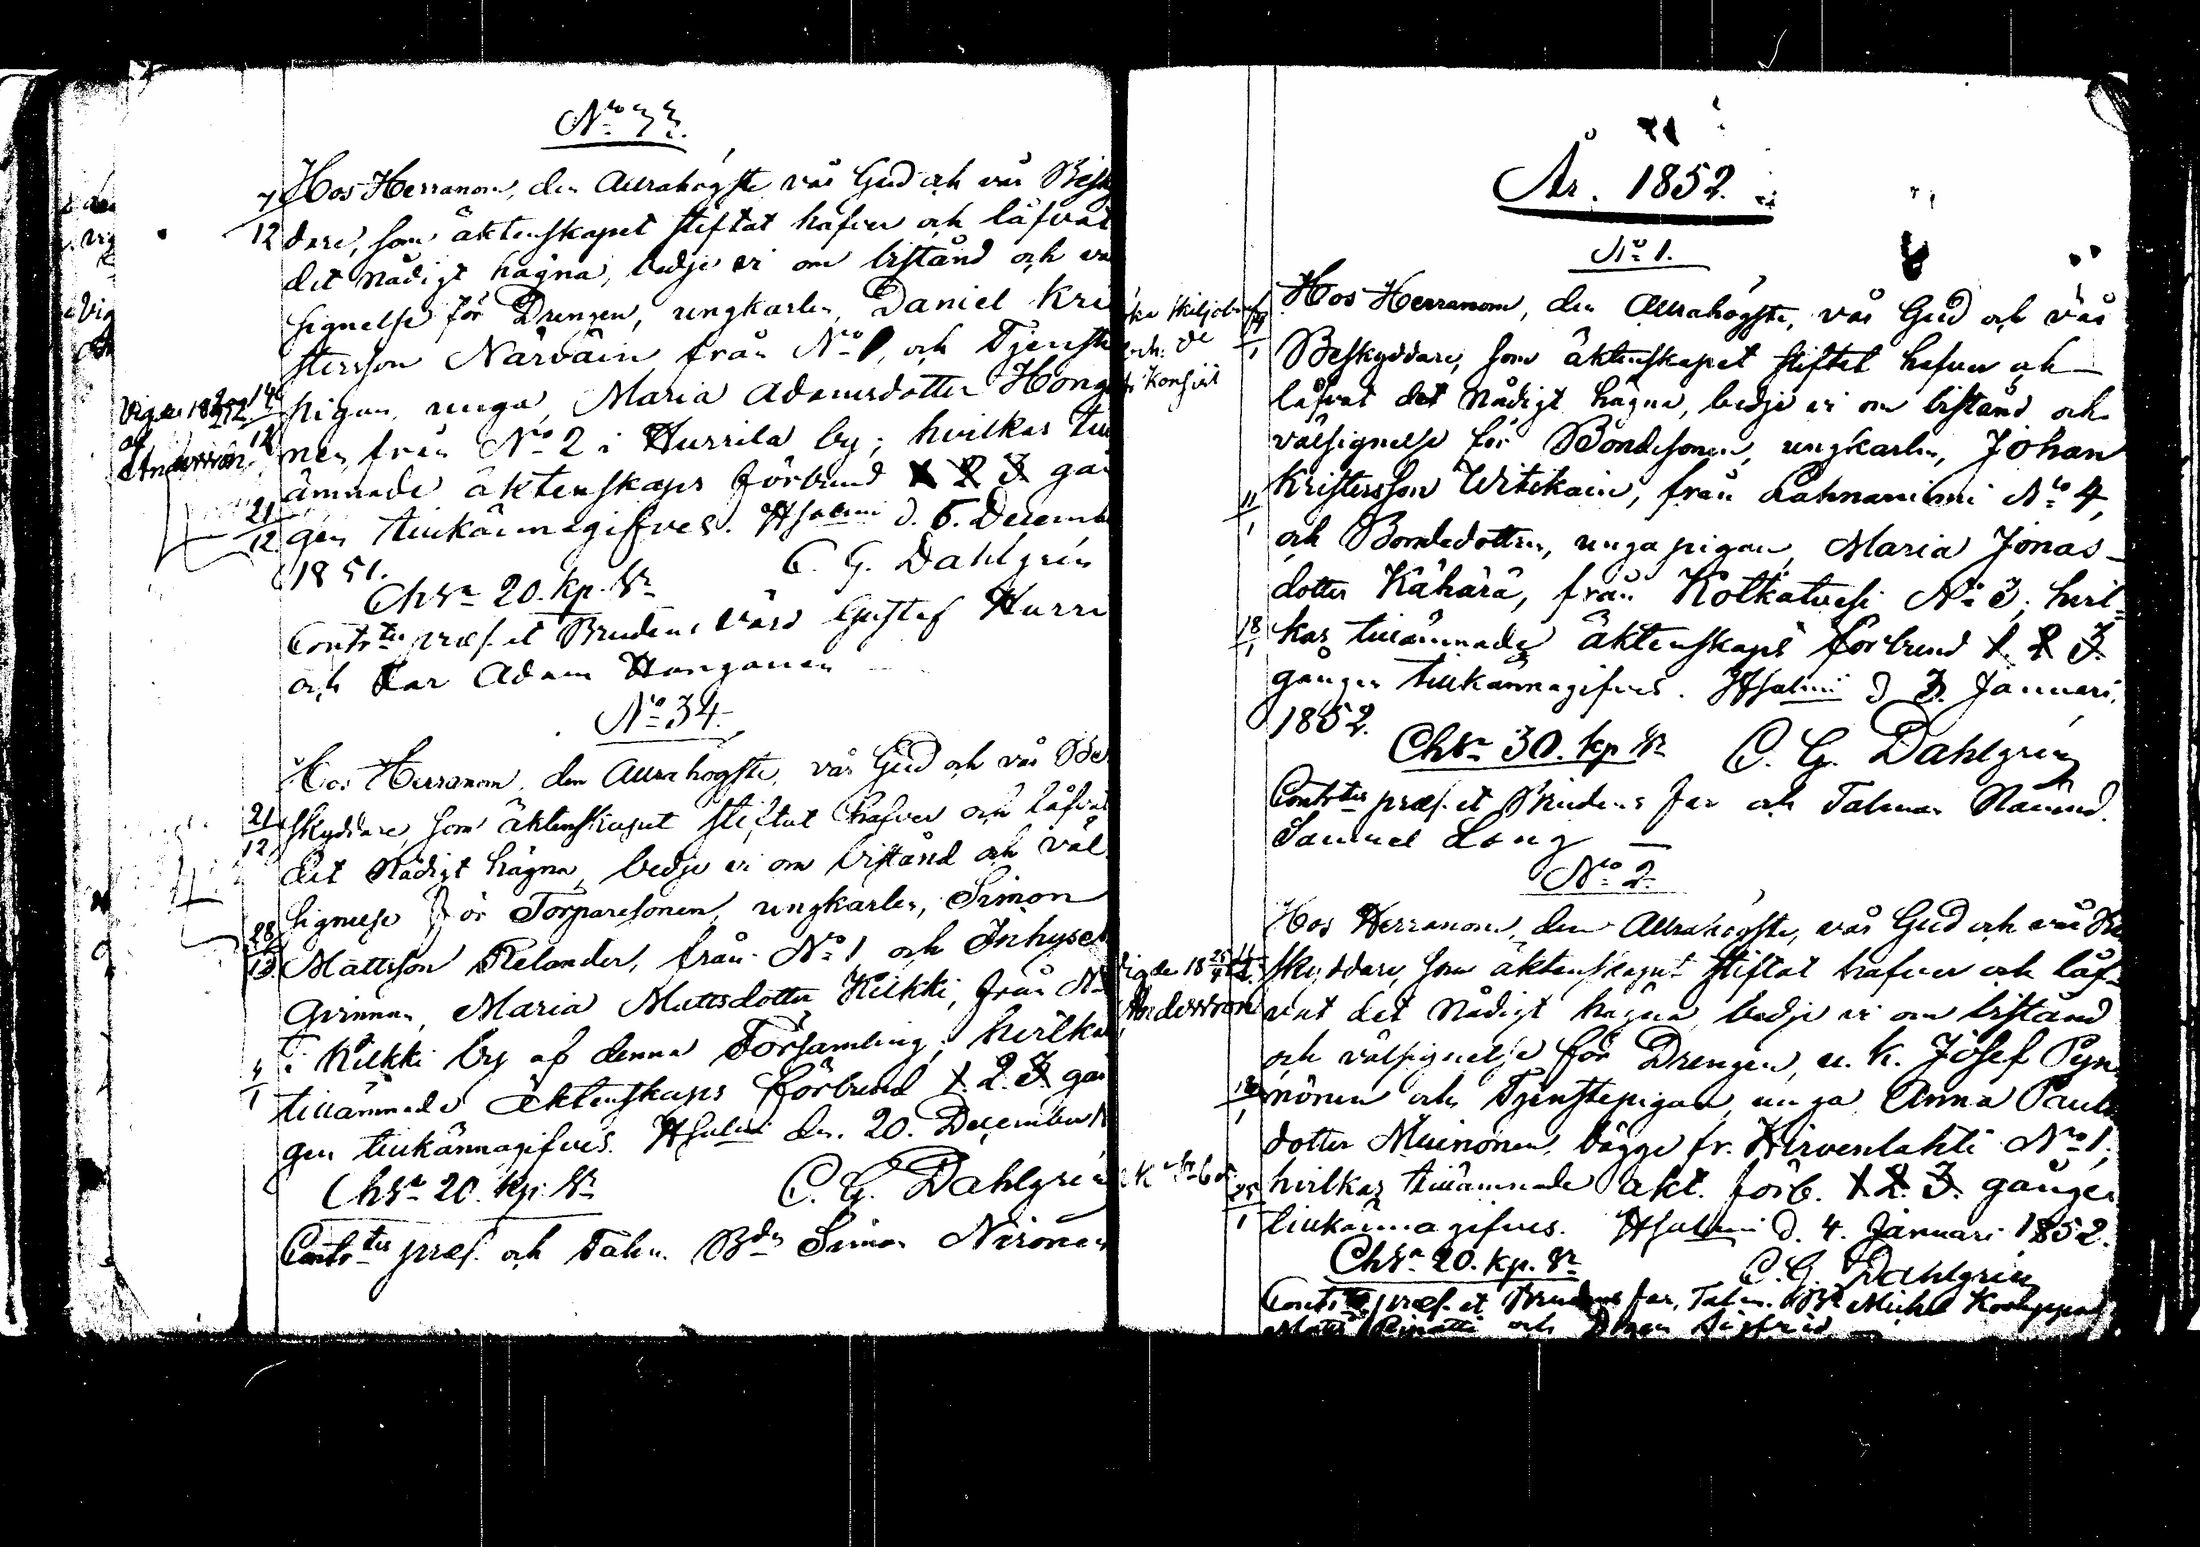 No 33.
Hos Herranom, den Allrahögste vår Gud och vår Besky
dare, som äktenskapet stiftat hafver och låfvat
det Nådigt hägna, bedje vi om bistånd och väl
signelse för Drengen, ungkarlen, Daniel Kri
stersson Närväin från No 1, och Tjenste
pigan, unga, Maria Adamsdotter Honga
nen, från No 2 i Hurrila by; hvilkas till
ämnade äktenskaps förbund 1 2 3 gån
gen tillkännagifves. Hsalmi d. 6. Decemb
1851. C. G. Dahlgrén
Chsn 20. kp. Sr
Contrtes præs. et Brudens Värd Gustaf Hurri
och Far Adam Honganen
7/12
14/12
21/12
Vigde
af
Andersson
No 34.
Hos Herranom, den Allrahögste, vår Gud och vår Be
skyddare, som äktenskapet stiftat hafver och låfvat
det Nådigt hägna, bedje vi om bistånd och väl
signelse för Torparesonen, ungkarlen, Simon
Mattsson Relander, från No 1 och Inhyses
qvinnan, Maria Mattsdotter Kilkki, från No
i Kilkki by af denna Församling; hvilkas
tillämnade Äktenskaps förbund 1. 2. 3 gån
gen tillkännagifves. Hsalmi den 20. December
Chsn 20. kp. Sr C. G. Dahlgrén
Contrtes præs. och Talm. Bdn Simon Nironen
21/12
28/12
4/1
År. 1852.
No 1.
Hos Herranom, den Allrahögste, vår Gud och vår
Beskyddare, som äktenskapet stiftat hafver och
låfvat det Nådigt hägna, bedje vi om bistånd och
välsignelse för Bondesonen, ungkarlen, Johan
Kristersson Witikain, från Lahnaniemi No 4,
och Bondedottren, unga pigan, Maria Jonas-
dotter Kähärä, från Kolkatvesi No 3; hvil-
kas tillämnade äktenskaps förbund 1. 2. 3.
gången tillkännagifves. Hsalmi d 3. Januari.
1852.
Chsn 30. kp. Sr C. G. Dahlgrén
Contrtes præs. et Brudens far och Talman Nämnd.
Samuel Long
11/1
18/1
No 2.
Hos Herranom, den Allrahögste, vår Gud och vår Be
skyddare, som äktenskapet stiftat hafver och låf-
vat det Nådigt hägna, bedje vi om bistånd
och välsignelse för Drengen, u. k. Josef Pyn
nönen och Tjenstepigan, unga Anna Pauls
dotter Muinonen, bägge fr. Hirvenlahti No 1;
hvilkas tillämnade äkt. förb. 1. 2. 3. gången
tillkännagifves. Hsalmi d. 4. Januari 1852.
Chsn 20. kp. Sr
C. G. Dahlgrén
Contrtes præs. et Brudens far, Talm. Michel
Matts och Dren Sigfrid
Andersson
18/1
25/1